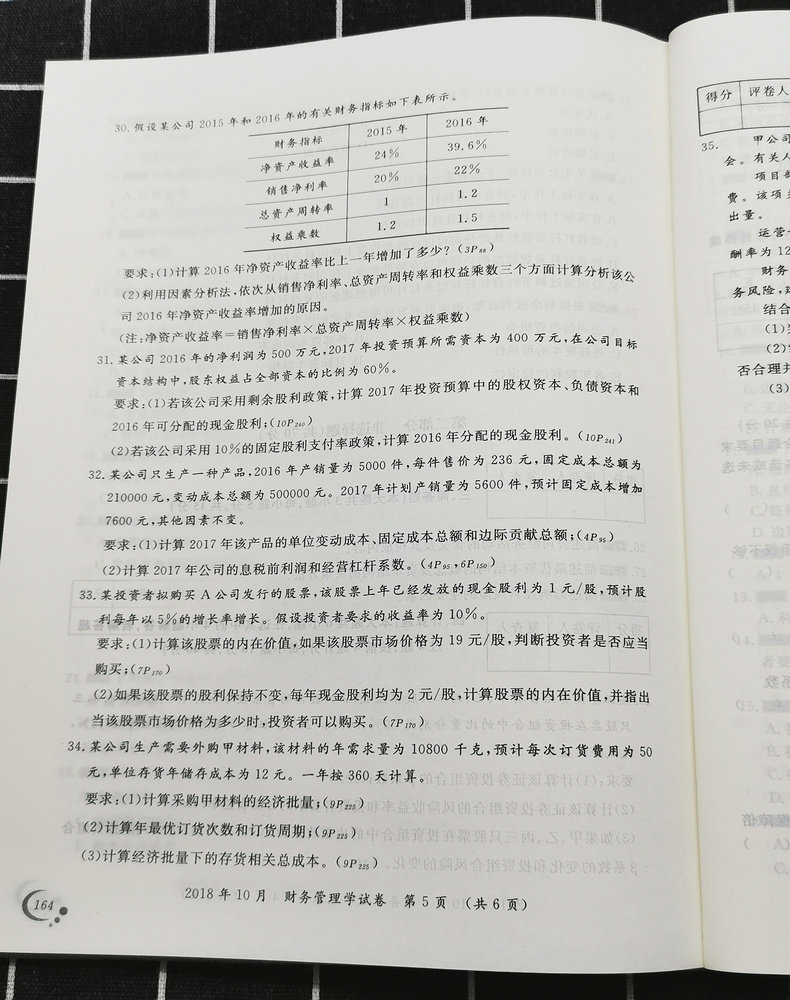 30. 假设某公司 2015 年和 2016 年的有关财务指标如下表所示。
财务指标 2015 年 2016 年
净资产收益率 24% 39.6%
销售净利率 20% 22%
总资产周转率 1 1.2
权益乘数 1.2 1.5
要求:(1)计算 2016 年净资产收益率比上一年增加了多少?(3P88)
(2)利用因素分析法,依次从销售净利率、总资产周转率和权益乘数三个方面计算分析该公
司 2016 年净资产收益率增加的原因。
(注:净资产收益率=销售净利率×总资产周转率×权益乘数)
31. 某公司 2016 年的净利润为 500 万元,2017 年投资预算所需资本为 400 万元,在公司目标
资本结构中,股东权益占全部资本的比例为 60%。
要求:(1)若该公司采用剩余股利政策,计算 2017 年投资预算中的股权资本、负债资本和
2016 年可分配的现金股利;(10P240)
(2)若该公司采用 10%的固定股利支付率政策,计算 2016 年分配的现金股利。(10P241)
32. 某公司只生产一种产品,2016 年产销量为 5000 件,每件售价为 236 元,固定成本总额为
210000 元,变动成本总额为 500000 元。2017 年计划产销量为 5600 件,预计固定成本增加
7600 元,其他因素不变。
要求:(1)计算 2017 年该产品的单位变动成本、固定成本总额和边际贡献总额;(4P95)
(2)计算 2017 年公司的息税前利润和经营杠杆系数。(4P95,6P150)
33. 某投资者拟购买 A 公司发行的股票,该股票上年已经发放的现金股利为 1 元/股,预计股
利每年以 5%的增长率增长。假设投资者要求的收益率为 10%。
要求:(1)计算该股票的内在价值,如果该股票市场价格为 19 元/股,判断投资者是否应当
购买;(7P170)
(2)如果该股票的股利保持不变,每年现金股利均为 2 元/股,计算股票的内在价值,并指出
当该股票市场价格为多少时,投资者可以购买。(7P170)
34. 某公司生产需要外购甲材料,该材料的年需求量为 10800 千克,预计每次订货费用为 50
元,单位存货年储存成本为 12 元。一年按 360 天计算。
要求:(1)计算采购甲材料的经济批量;(9P225)
(2)计算年最优订货次数和订货周期;(9P225)
(3)计算经济批量下的存货相关总成本。(9P225)
164
2018 年 10 月 财务管理学试卷 第 5 页 (共 6 页)
得分 评卷人
35. 甲公司
会。有关人
项目
费。该项
出量。
运营
酬率为 12
财务
务风险,
结合
(1)
(2)
否合理并
(3)